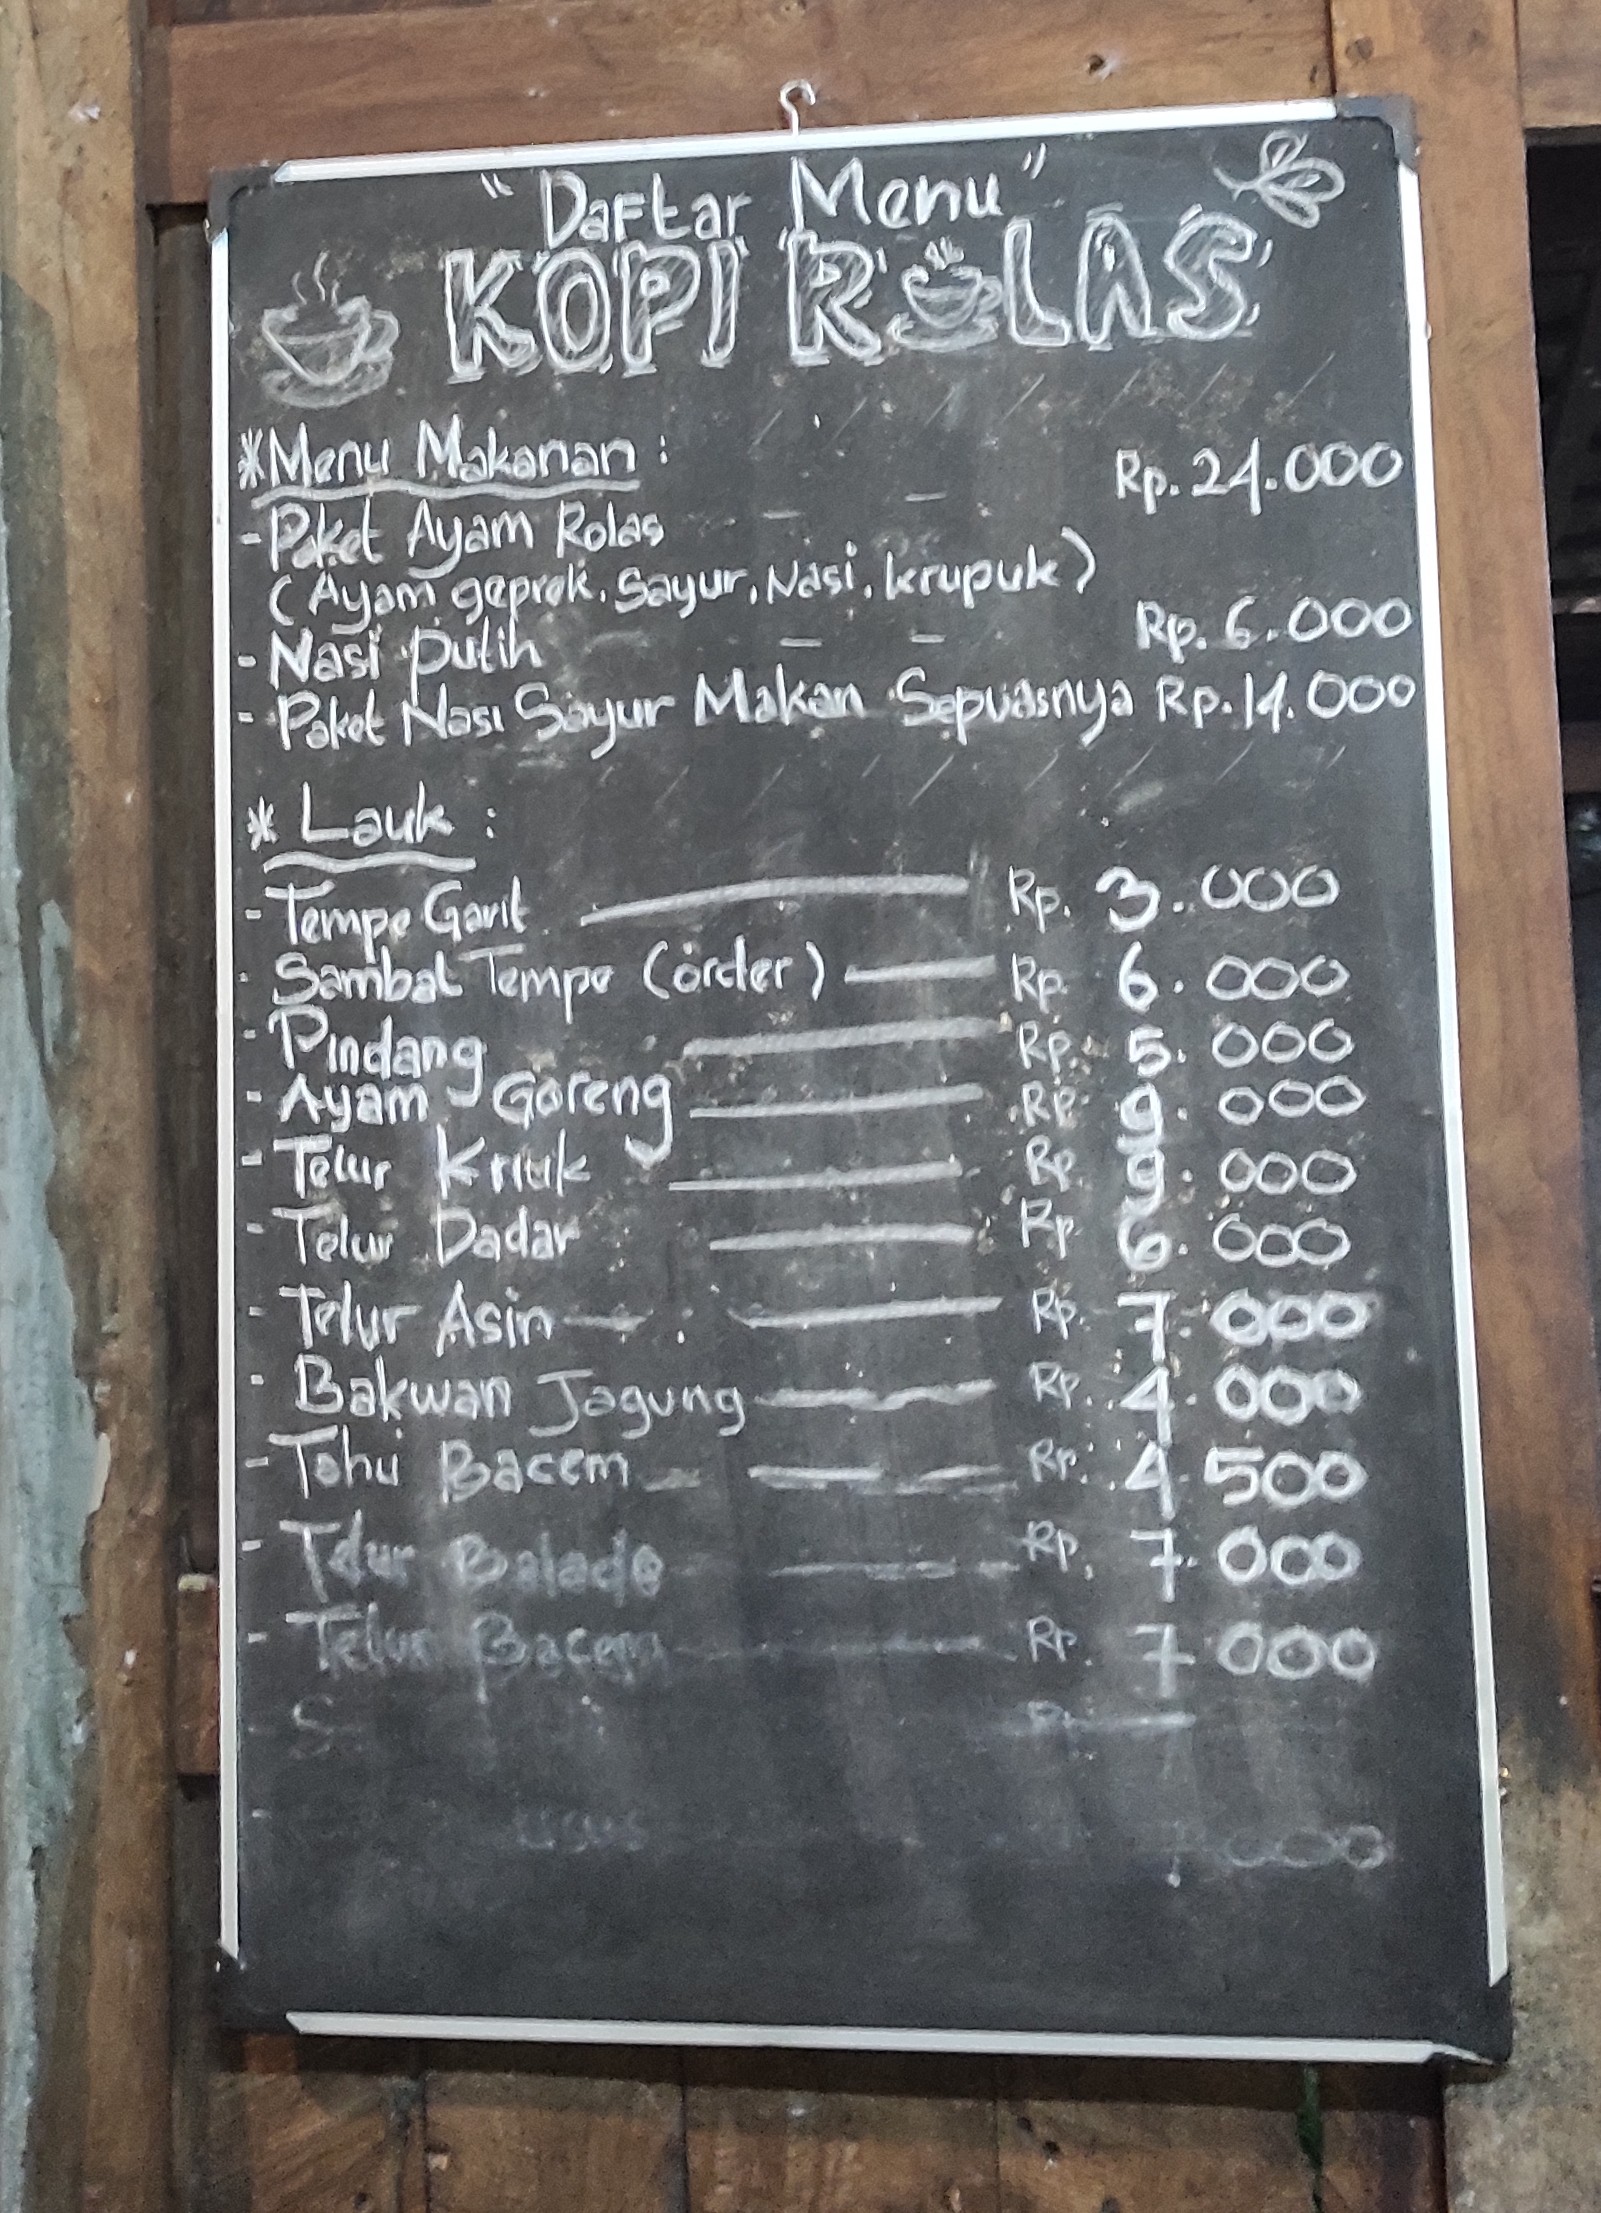 "Daftar Menu"
KOPI ROLAS
*Menu Makanan :
- Paket Ayam Rolas - - Rp. 24.000
(Ayam geprek, Sayur, Nasi, krupuk)
- Nasi putih - - Rp. 6.000
- Paket Nasi Sayur Makan Sepuasnya Rp. 14.000
* Lauk :
- Tempe Garit Rp. 3.000
- Sambal Tempe (order) Rp. 6.000
- Pindang Rp. 5.000
- Ayam Goreng Rp. 9.000
- Telur Kriuk Rp. 9.000
- Telur Dadar Rp. 6.000
- Telur Asin Rp. 7.000
- Bakwan Jagung Rp. 4.000
- Tahu Bacem Rp. 4.500
- Telur Balado Rp. 7.000
- Telur Bacem Rp. 7.000